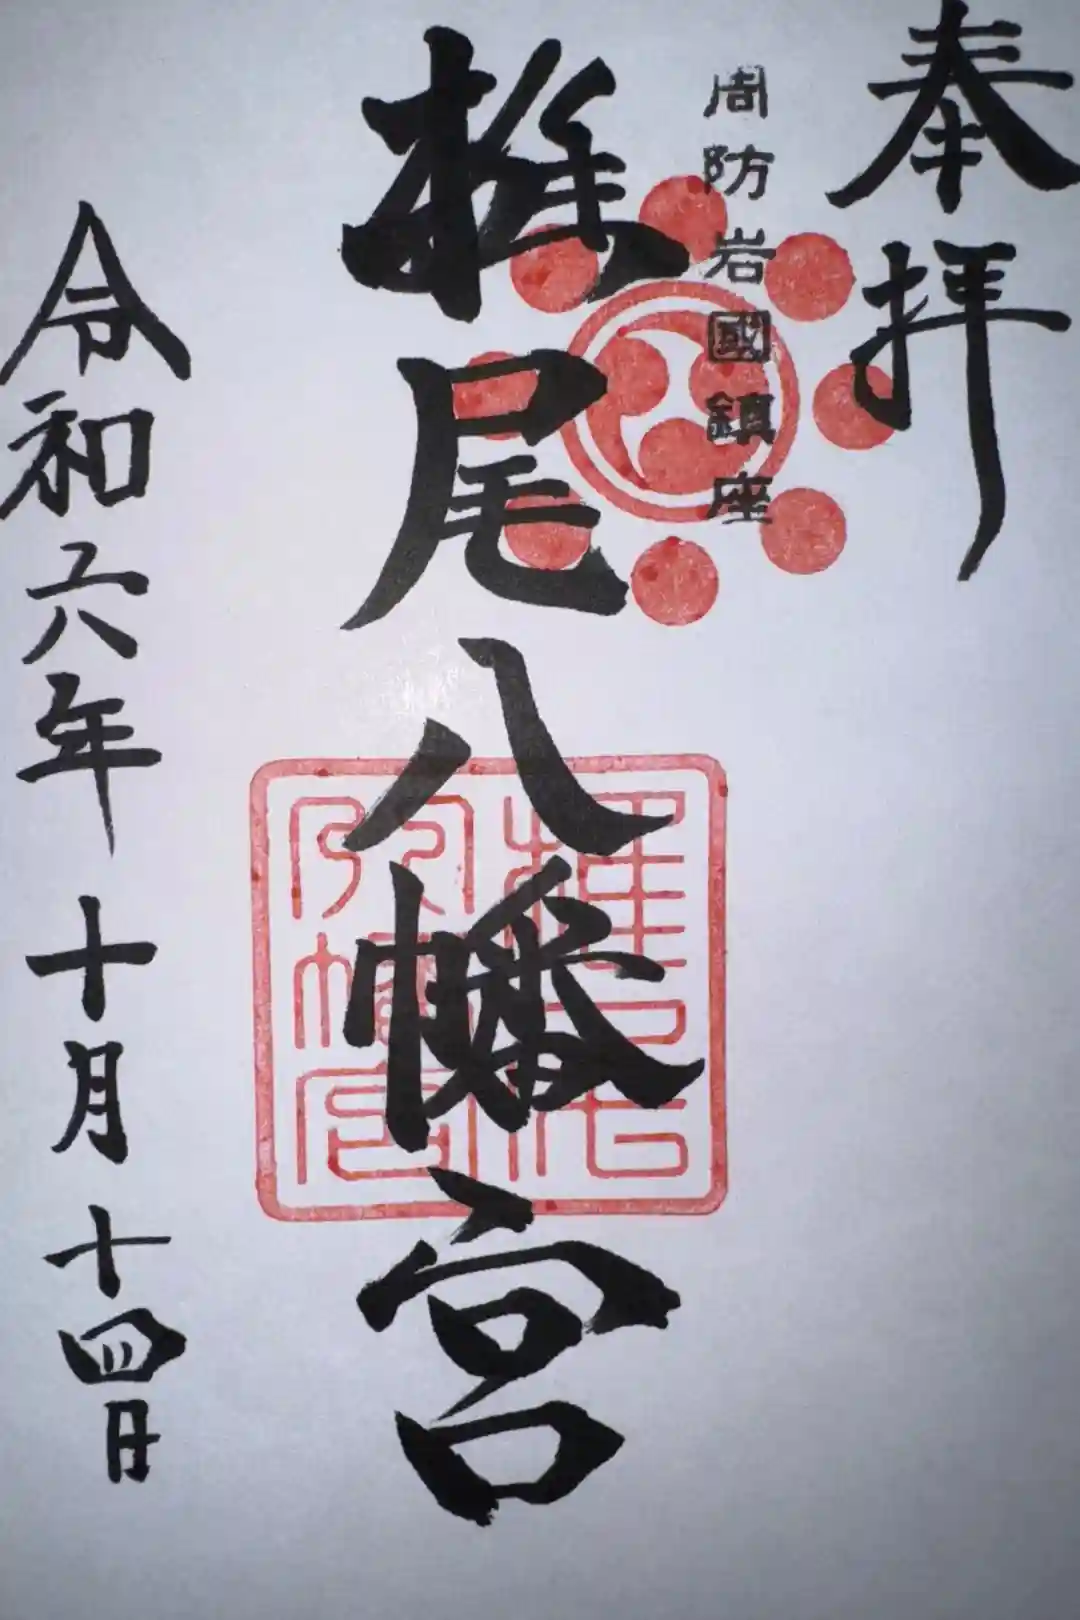 奉拝
周防岩國鎮座
椎尾八幡宮
椎尾
八幡宮
令和六年十月十四日